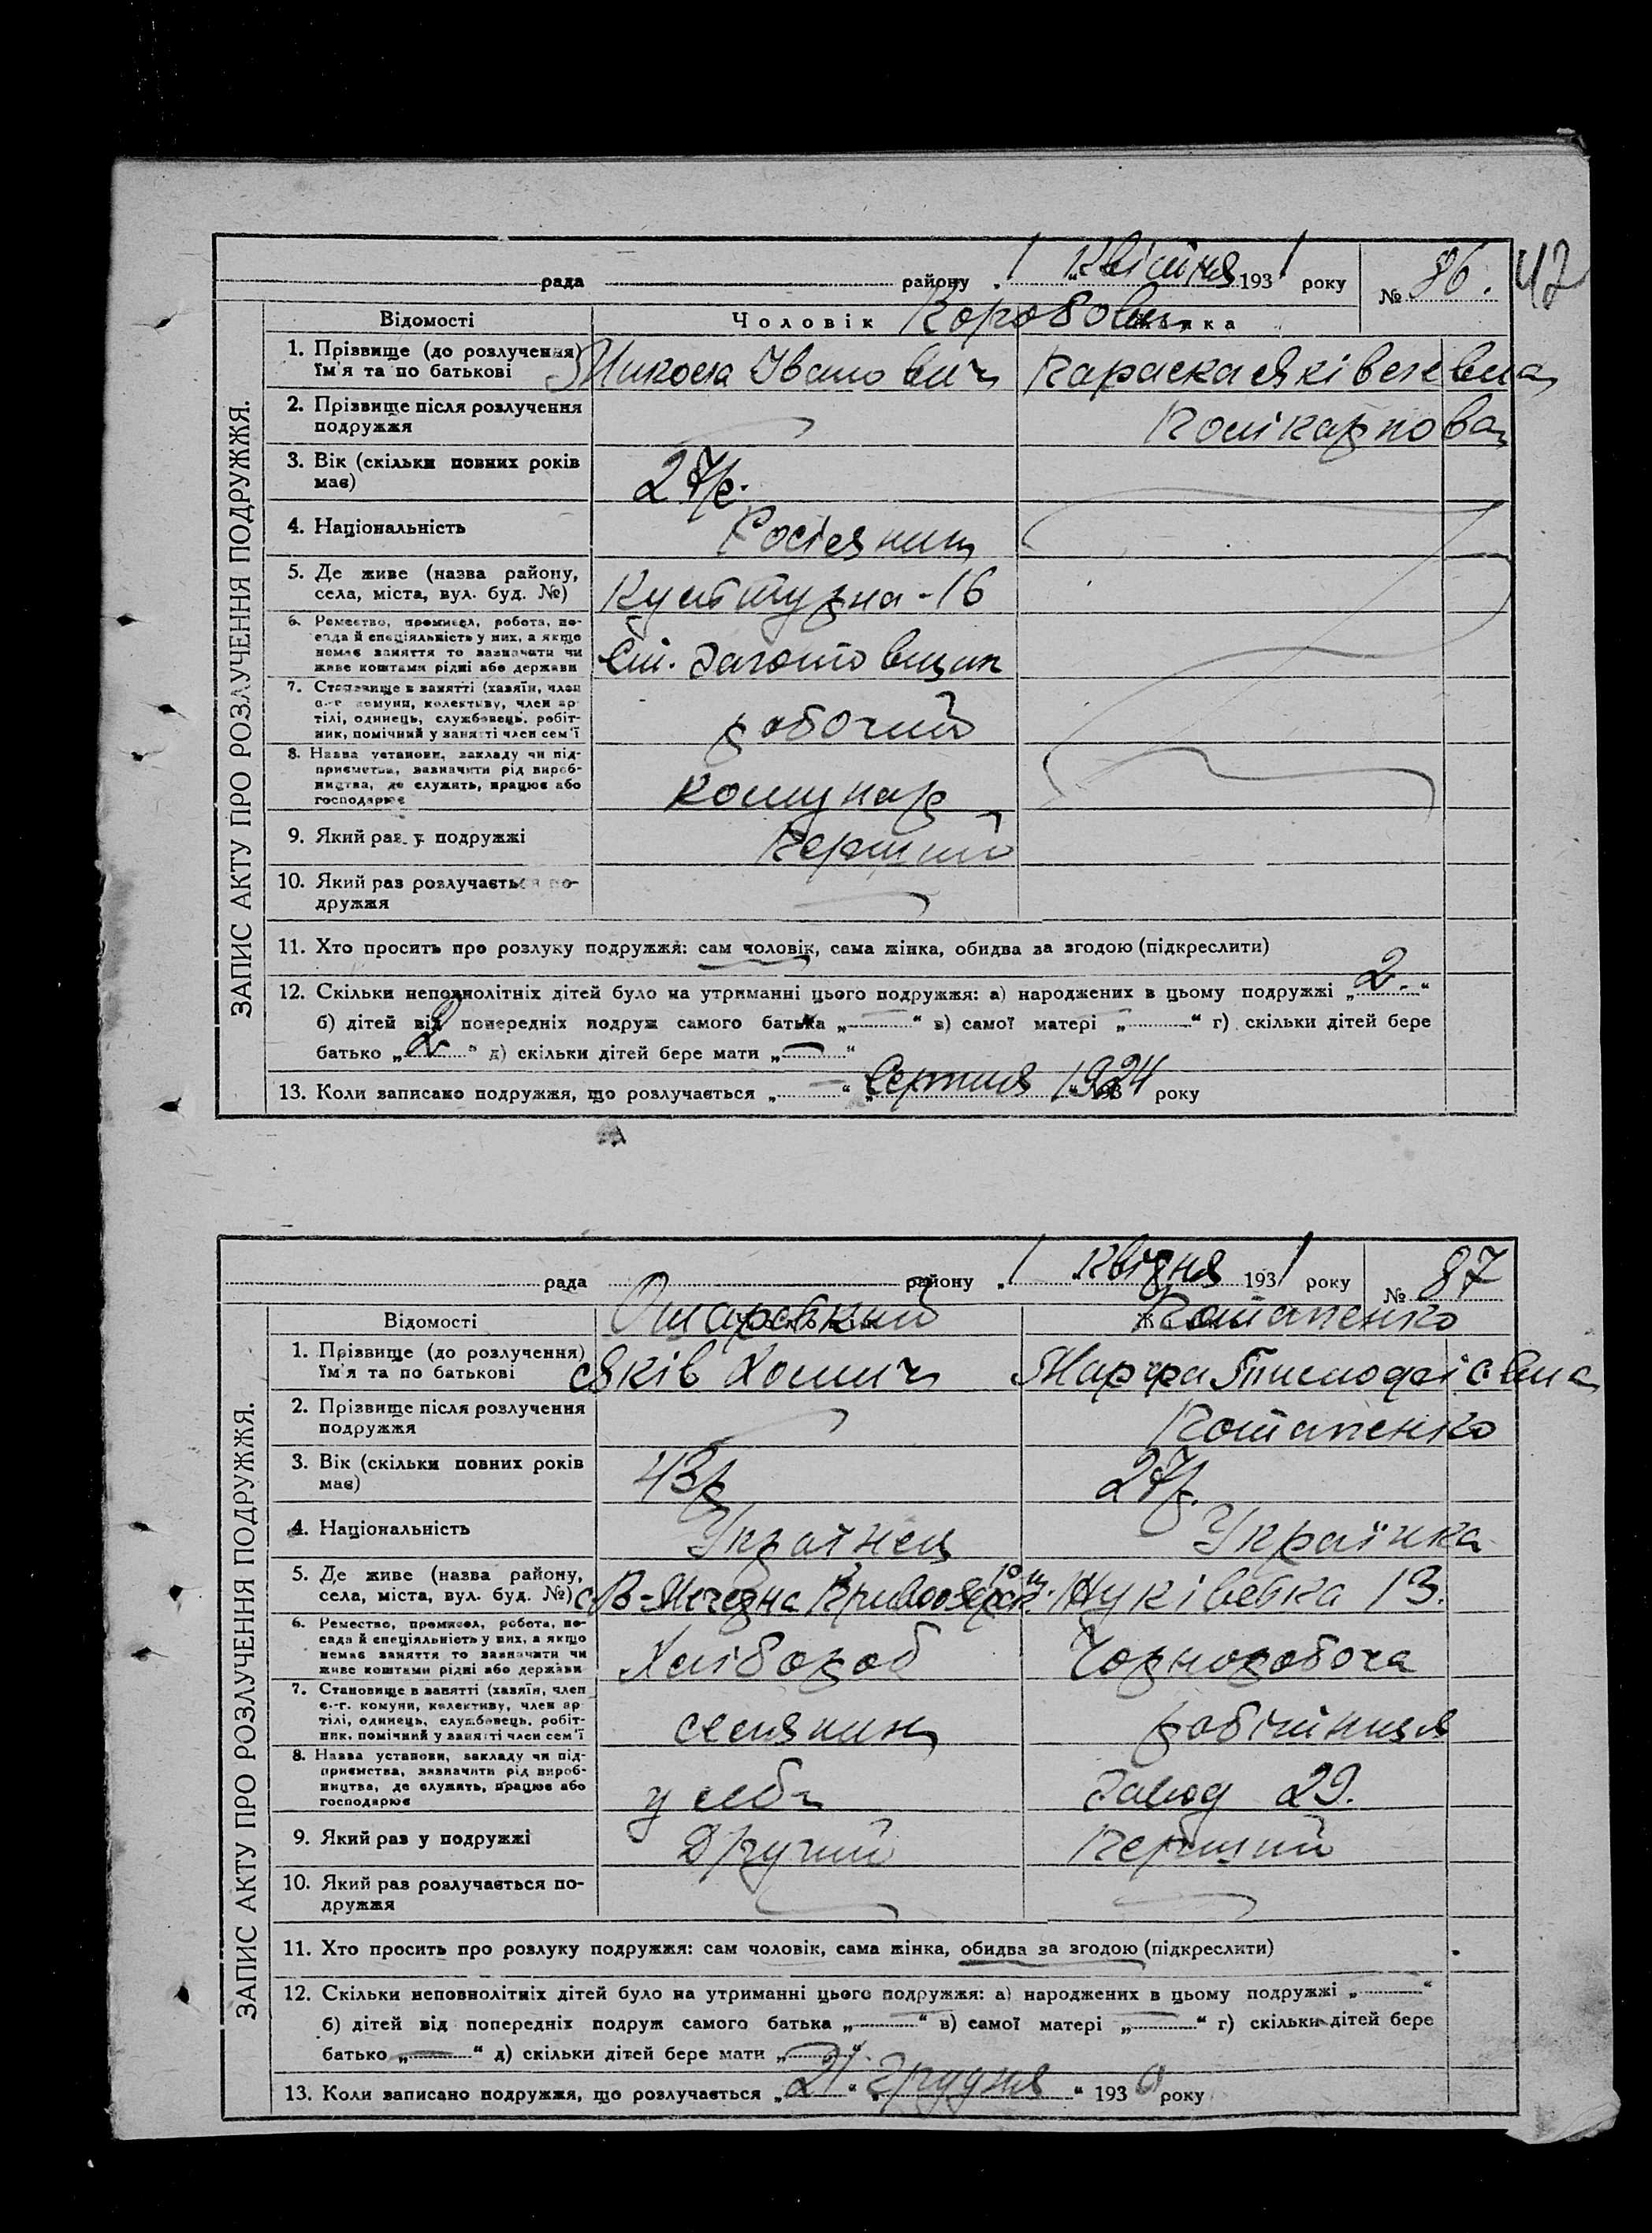 рада району „ 1 „ Квітня 1931 року № 86. 47
ЗАПИС АКТУ ПРО РОЗЛУЧЕННЯ ПОДРУЖЖЯ.
Відомості Чоловік Жінка
Коробови
1. Прізвище (до розлучення) Микола Іванович Параска Яківелевна
їм'я та по батькові
2. Прізвище після розлучення Полікарпова
подружжя
3. Вік (скільки повних років 27/р.
має)
4. Національність Росіянин
5. Де живе (назва району, Культурна-16
села, міста, вул. буд. №)
6. Ремество, промисел, робота, по-
сада й спеціяльність у них, а якщо
немає заняття то зазначити чи
живе коштами рідні або держави
Заготовщик
7. Становище в занятті (хазяїн, член
с.-г. комуни, колективу, член ар
тілі, одинець, службовець, робіт-
ник, помічний у занятті член сем'ї
робочий
8. Назва установи, закладу чи під-
приємства, зазначити рід вироб-
ництва, де служить, працює або
господарює
Комунар
9. Який раз у подружжі Перший
10. Який раз розлучається по-
дружжя
11. Хто просить про розлуку подружжя: сам чоловік, сама жінка, обидва за згодою (підкреслити)
12. Скільки неповнолітніх дітей було на утриманні цього подружжя: а) народжених в цьому подружжі „ 2. “
б) дітей від попередніх подруж самого батька „ “ в) самої матері „ “ г) скільки дітей бере
батько „ 2 “ д) скільки дітей бере мати „ — “
13. Коли записано подружжя, що розлучається „ — “ „ Серпня 1924 року
рада району „ 1 „ Квітня 1931 року № 87
ЗАПИС АКТУ ПРО РОЗЛУЧЕННЯ ПОДРУЖЖЯ.
Відомості Отаровский Потапенко
1. Прізвище (до розлучення) Яків Хомич Марфа Тимофіївна
їм'я та по батькові
2. Прізвище після розлучення Потапенко
подружжя
3. Вік (скільки повних років 43/р 27/р.
має)
4. Національність Українец Українка
5. Де живе (назва району,
села, міста, вул. буд. №) 13.
6. Ремество, промисел, робота, по-
сада й спеціяльність у них, а якщо
немає заняття то зазначити чи
живе коштами рідні або держави
Хлібороб Чорноробоча
7. Становище в занятті (хазяїн, член
с.-г. комуни, колективу, член ар
тілі, одинець, службовець, робіт-
ник, помічний у занятті член сем'ї
селянин робітниця
8. Назва установи, закладу чи під-
приємства, зазначити рід вироб-
ництва, де служить, працює або
господарює
у себя Завод 29.
9. Який раз у подружжі Другий Перший
10. Який раз розлучається по-
дружжя
11. Хто просить про розлуку подружжя: сам чоловік, сама жінка, обидва за згодою (підкреслити)
12. Скільки неповнолітніх дітей було на утриманні цього подружжя: а) народжених в цьому подружжі „ — “
б) дітей від попередніх подруж самого батька „ — “ в) самої матері „ — “ г) скільки дітей бере
батько „ — “ д) скільки дітей бере мати „ — “
13. Коли записано подружжя, що розлучається „ 21. “ „ грудня “ 1930 року